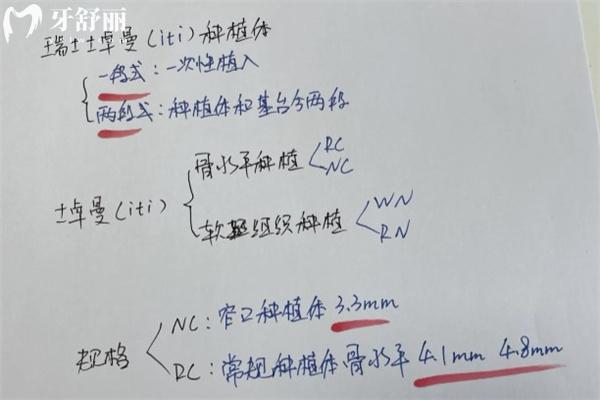 牙舒丽
瑞士士卓曼(iti)种植体
一段式：一次性植入
两段式：种植体和基台分两段
士卓曼(iti)
骨水平种植
RC
NC
软组织种植
WN
RN
规格
NC：窄口种植体 3.3mm
RC：常规种植体骨水平 4.1mm 4.8mm